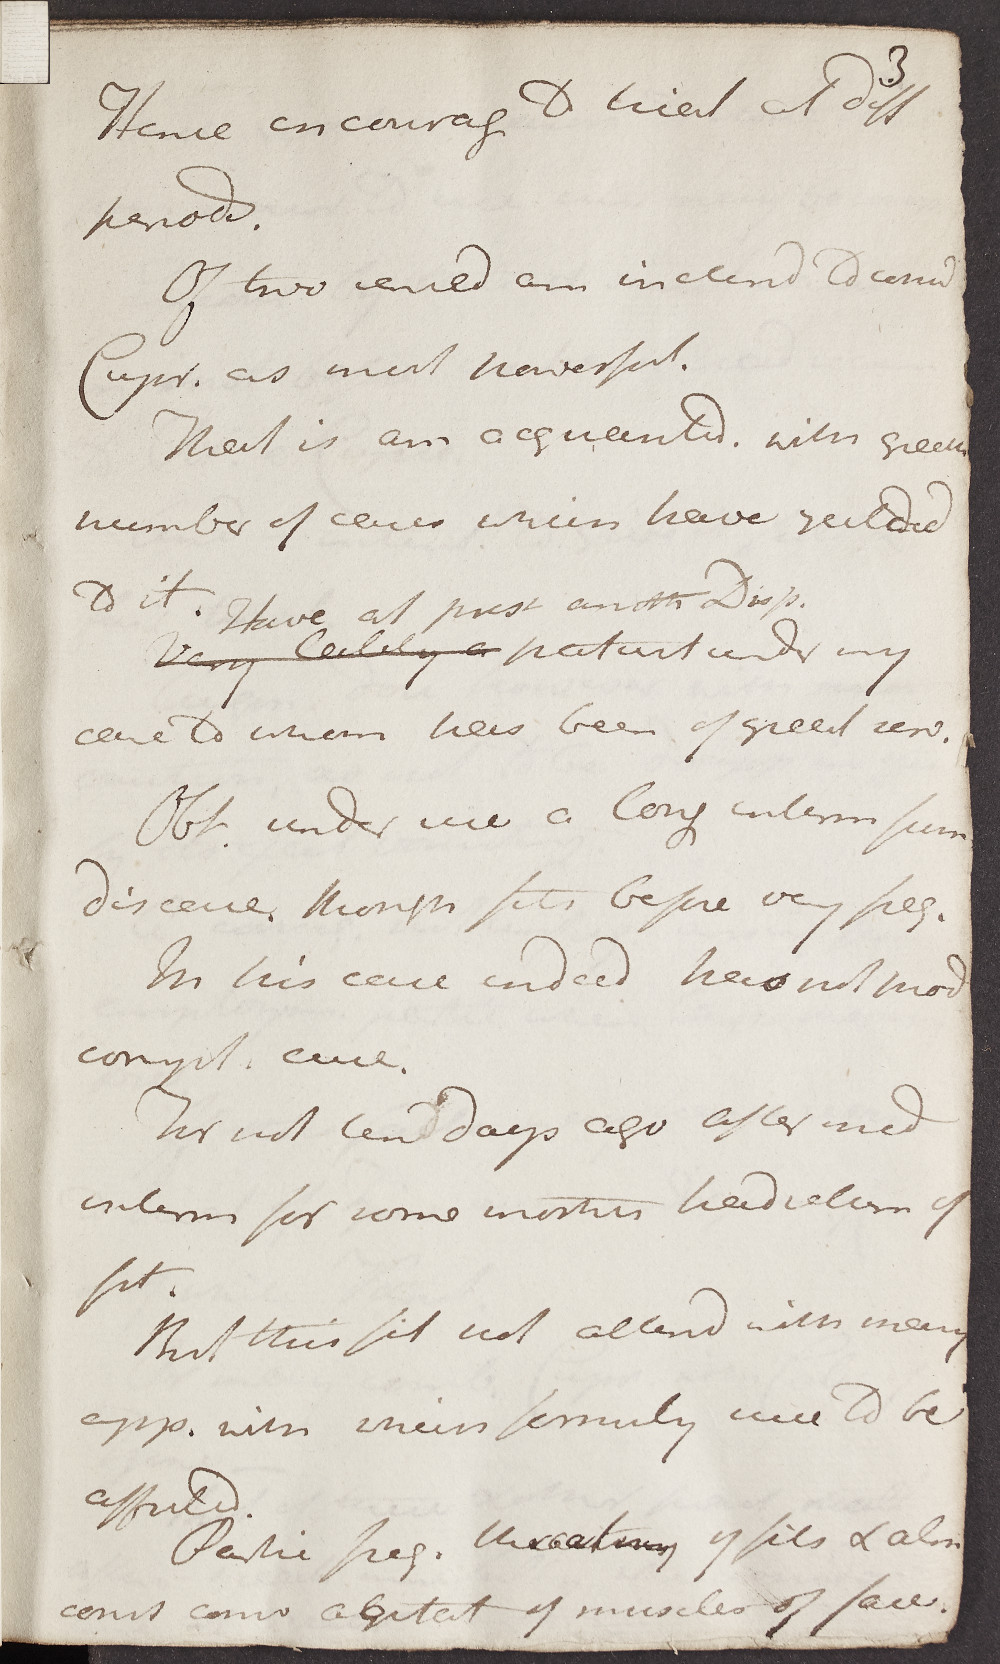 3
Hence encourag to trial at diff
periods.
Of two used am inclend to consid
Cupr. as most powerful.
That is am acqueanted. with great
number of cases which have yeilded
to it. Have at prest anoth Disp.
Very lately a patient under my
care to whom has been of great serv.
Obt. under use a long interm from
disease. though fits before very freq.
In his case indeed has not prod
compt. cure.
For not ten days ago after
interm for some months had return of
fit.
But this fit not attend with many
app. with which formerly use to be
affected.
Partic freq. threatning of fits & alm
const conv agitat of muscles of face.